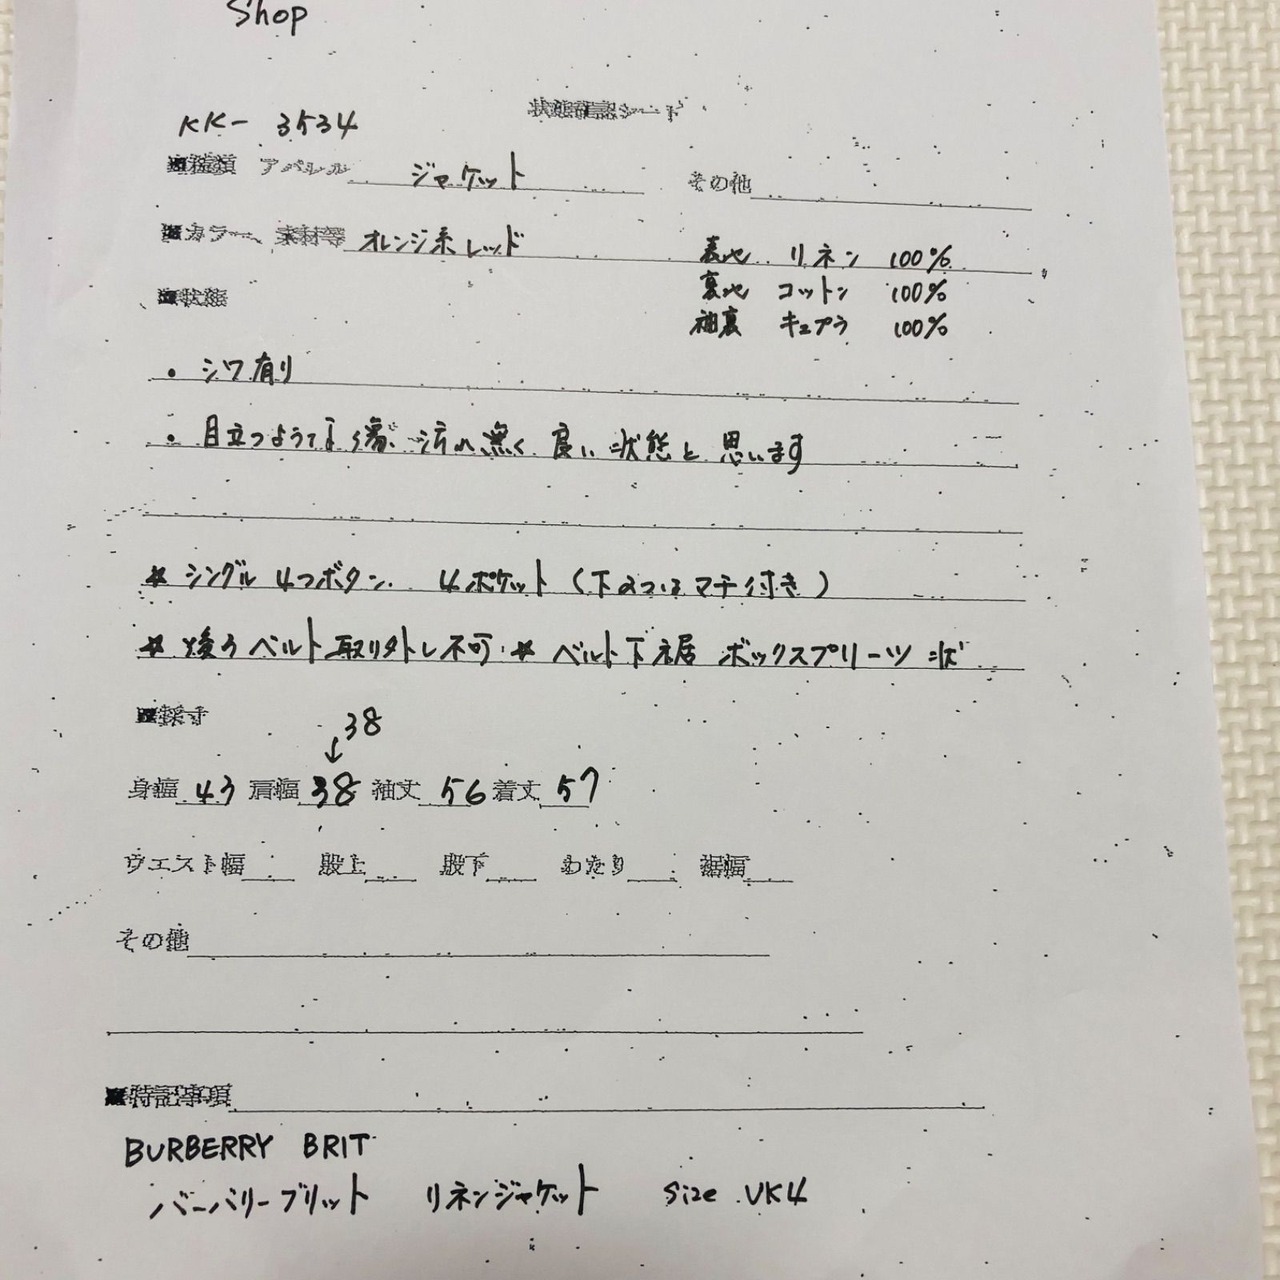 Shop
状態確認シート
KK- 3534
■種類 アパレル ジャケット その他
■カラー、素材等 オレンジ系レッド 表地 リネン 100%
■状態 裏地 コットン 100%
袖裏 キュプラ 100%
・ シワ有り
・ 目立つような傷、汚れ無く 良い状態と思います
* シングル 4つボタン 4ポケット (下2つはマチ付き)
* 後ろベルト取り外し不可 * ベルト下裾 ボックスプリーツ状
■採寸
38
↓
身幅 43 肩幅 38 袖丈 56 着丈 57
ウエスト幅 股上 股下 わたり 裾幅
その他
■特記事項
BURBERRY BRIT
バーバリーブリット リネンジャケット size VK4